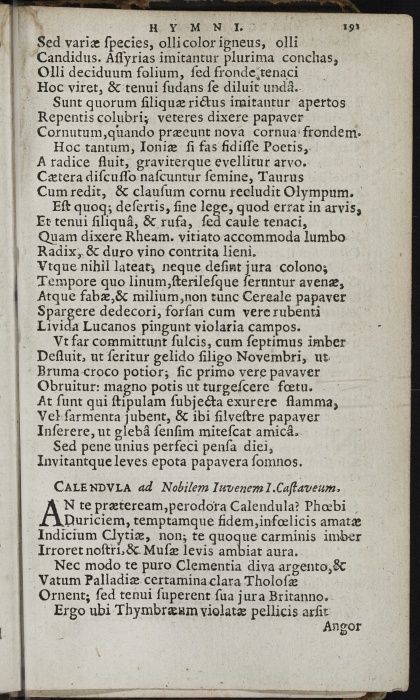 HYMNI. 191
Sed variæ species, olli color igneus, olli
Candidus. Assyrias imitantur plurima conchas,
Olli deciduum folium, sed fronde tenaci
Hoc viret, & tenui sudans se diluit undâ.
Sunt quorum siliquæ rictus imitantur apertos
Repentis colubri; veteres dixere papaver
Cornutum, quando præeunt nova cornua frondem.
Hoc tantum, Ioniæ si fas fidisse Poetis,
A radice fluit, graviterque evellitur arvo.
Cætera discusso nascuntur semine, Taurus
Cum redit, & clausum cornu recludit Olympum.
Est quoq; desertis, sine lege, quod errat in arvis,
Et tenui siliquâ, & rufa, sed caule tenaci,
Quam dixere Rheam. vitiato accommoda lumbo
Radix, & duro vino contrita lieni.
Vtque nihil lateat, neque desint jura colono;
Tempore quo linum, sterilesque seruntur avenæ,
Atque fabæ, & milium, non tunc Cereale papaver
Spargere dedecori, forsan cum vere rubenti
Livida Lucanos pingunt violaria campos.
Vt far committunt sulcis, cum septimus imber
Defluit, ut seritur gelido siligo Novembri, ut
Bruma croco potior; sic primo vere pavaver
Obruitur: magno potis ut turgescere fœtu.
At sunt qui stipulam subjecta exurere flamma,
Vel sarmenta jubent, & ibi silvestre papaver
Inserere, ut glebâ sensim mitescat amicâ.
Sed pene unius perfeci pensa diei,
Invitantque leves epota papavera somnos.
CALENDVLA ad Nobilem Iuvenem I. Castaveum.
AN te præteream, per odora Calendula? Phœbi
Duriciem, temptamque fidem, infœlicis amatæ
Indicium Clytiæ, non; te quoque carminis imber
Irroret nostri, & Musæ levis ambiat aura.
Nec modo te puro Clementia diva argento, &
Vatum Palladiæ certamina clara Tholosæ
Ornent; sed tenui superent sua jura Britanno.
Ergo ubi Thymbræum violatæ pellicis arsit
Angor